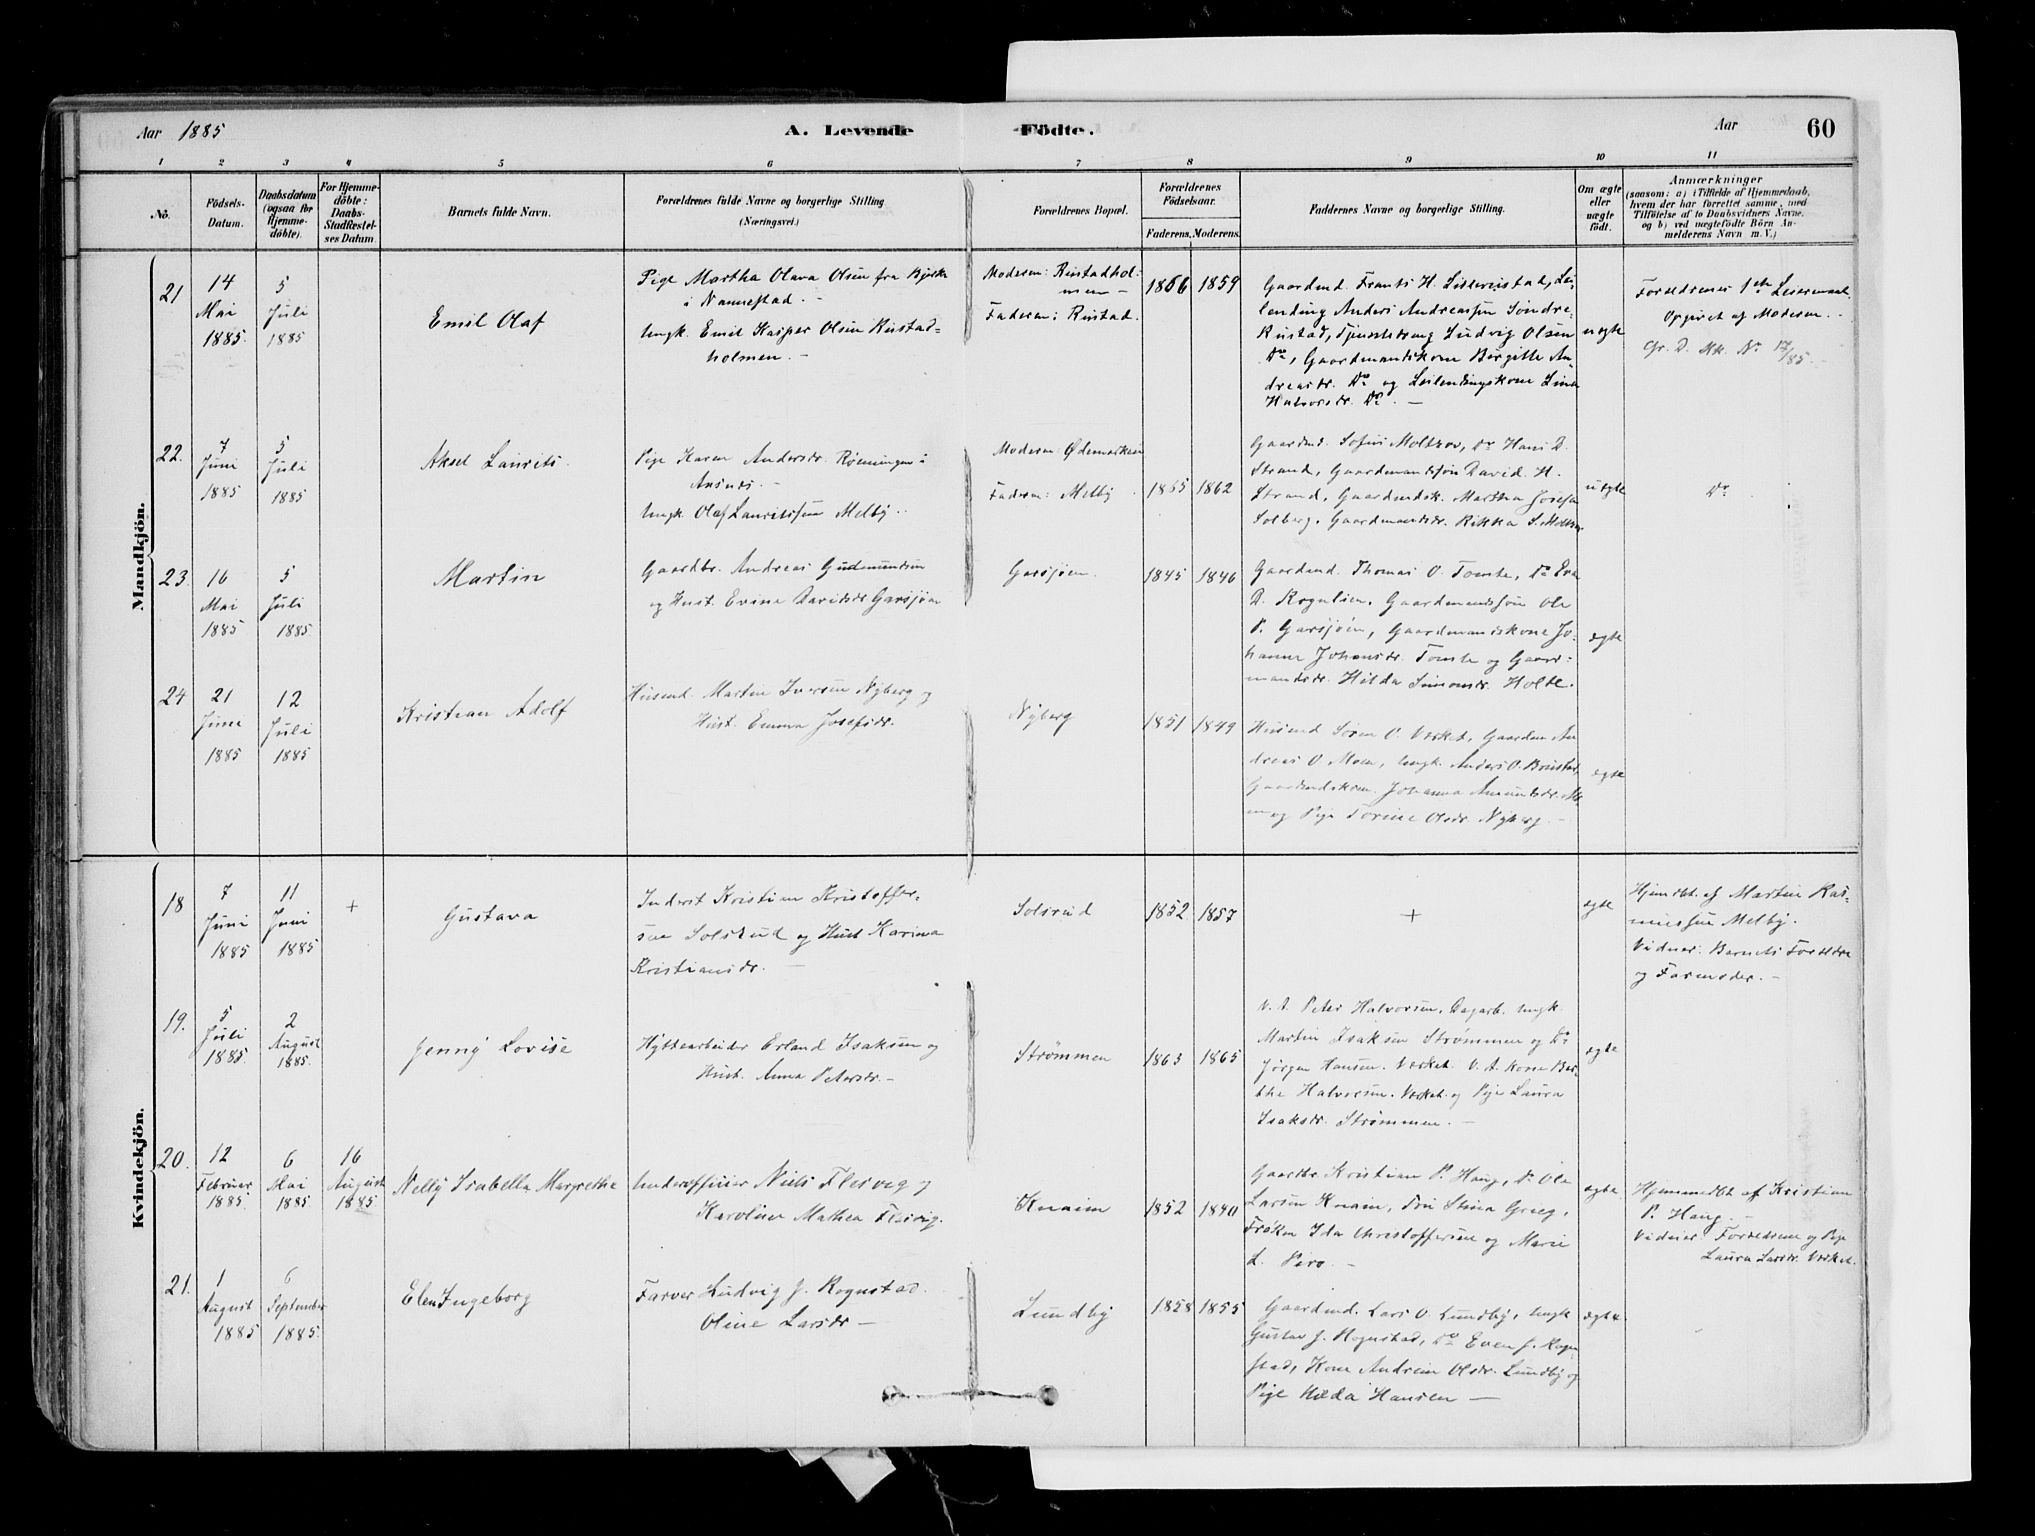 Aar 1885
A. Levende Födte.
Aar
60
1 2 3 4 5 6 7 8 9 10 11
No.
Födsels-Datum.
Daabsdatum (ogsaa for Hjemme-döbte).
For Hjemme-döbte: Daabs-Stadfæstel-ses Datum.
Barnets fulde Navn.
Forældrenes fulde Navne og borgerlige Stilling (Næringsvei.)
Forældrenes Bopæl.
Forældrenes Födselsaar.
Faderens. Moderens.
Faddernes Navne og borgerlige Stilling.
Om ægte eller uægte födt.
Anmærkninger
(saasom: a) i Tilfælde af Hjemmedaab,
hvem der har forrettet samme, med
Tilföielse af to Daabsvidners Navne,
og b) ved uægtefödte Börn An-
melderens Navn m. V.)
Mandkjön.
21
14 Mai 1885.
5 Juli 1885
Emil Olaf
Pige Martha Olava Olsen fra Bjerke
i Nannestad. -
Ungk. Emil Kasper Olsen Rustad=
holmen. -
Moderen: Rustadhol=
men -
Faderen: Rustad.
1866 1859
Gaardmd. Frants H. Lisserustad, Lei-
lending Anders Andreassen Søndre-
Rustad, Tjenestedreng Ludvig Olsen
Do, Gaardmandskone Birgitte An
dreasdr. Do og Leilendingskone Lina
Halvorsdr. Do. -
uægte
Forældrenes 1ste Leiermaal.
Opgivet af Moderen. -
Gr. D. Kk. No 17/85.
22.
7 Juni 1885
5 Juli 1885
Aksel Laurits.
Pige Karen Andersdr. Rømningen i
Aasnes. -
Ungk. Olaf Lauritssen Melby.
Moderen: Ødemarken
Faderen: Melby.
1865 1862
Gaardmd. Sofus Moltzov, Do Hans D.
Strand, Gaardmandssøn David H.
Strand, Gaardmdsk. Martha Josefsen
Solberg, Gaardmandsdr. Rikka S. Moltzov
uægte
Do
23.
16 Mai 1885
5 Juli 1885.
Martin
Gaardbr. Andreas Gudmundsen
og Hust. Evine Davidsdr Garsjøen
Garsjøen.
1845 1846
Gaardmd. Thomas O. Tomte, Do Eva
D. Rognlien, Gaardmandssøn Ole
P. Garsjøen, Gaardmandskone Jo-
hanne Johansdr. Tomte og Gaard=
mandsdr. Hilda Simonsdr. Holte.
ægte
24
21 Juni 1885
12 Juli 1885
Kristian Adolf
Husmd. Martin Iversen Nyberg og
Hust. Emma Josefsdr.
Nyberg
1851 1849
Husmd Søren O. Værket, Gaardm An
dreas O. Moen, Ungk. Anders O. Brustad,
Gaardmdskon. Johanna Amundsdr. Mo
en og Pige Torine Olsdr. Nyberg. -
ægte
Kvindekjön.
18
7 Juni 1885
11 Juni 1885
+
Gustava
Inderst Kristian Kristoffer-
sen Solsrud og Hust Karina
Kristiansdr. -
Solsrud
1852. 1857
+
ægte
Hjemdbt. af Martin Ras-
mussen Melby.
Vidner: Barnets Forældre
og Farmoder. -
19.
5 Juli 1885
2 August 1885.
Jenny Lovise
Hyttearbeider Erland Isaksen og
Hust. Anna Petersdr. -
Strømmen
1863 1865
V. A. Peter Halvorsen, Dagarb. Ungk.
Martin Isaksen Strømmen og Do
Jørgen Hansen. Værket. V. A. Kone Ber-
the Halvorsen. Værket. og Pige Laura
Isaksdr. Strømmen. -
ægte
20.
12 Februar 1885.
6 Mai 1885.
16 August 1885
Nelly Isabella Margrethe
Underofficier Niels Flesvig og
Karoline Mathea Flesvig.
Knaim
1852 1840
Gaardbr Kristian P. Haug, Do Ole
Larsen Knaim, Fru Stina Greeg,
Frøken Ida Christoffersen og Marie
L. Piro. -
ægte
Hjemmedbt af Kristian
P. Haug. -
Vidner Forældrene og Pige
Laura Larsdr. Værket.
21.
1 August 1885
6 September 1885.
Elen Ingeborg
Farver Ludvig J. Rognstad.
Oline Larsdr -
Lundby
1858 1855
Gaardmd. Lars O. Lundby, Ungk
Gustav J. Rognstad, Do Even J. Rogn-
stad, Kone Andrine Olsdr. Lundby og
Pige Hæda Hansen -
ægte.